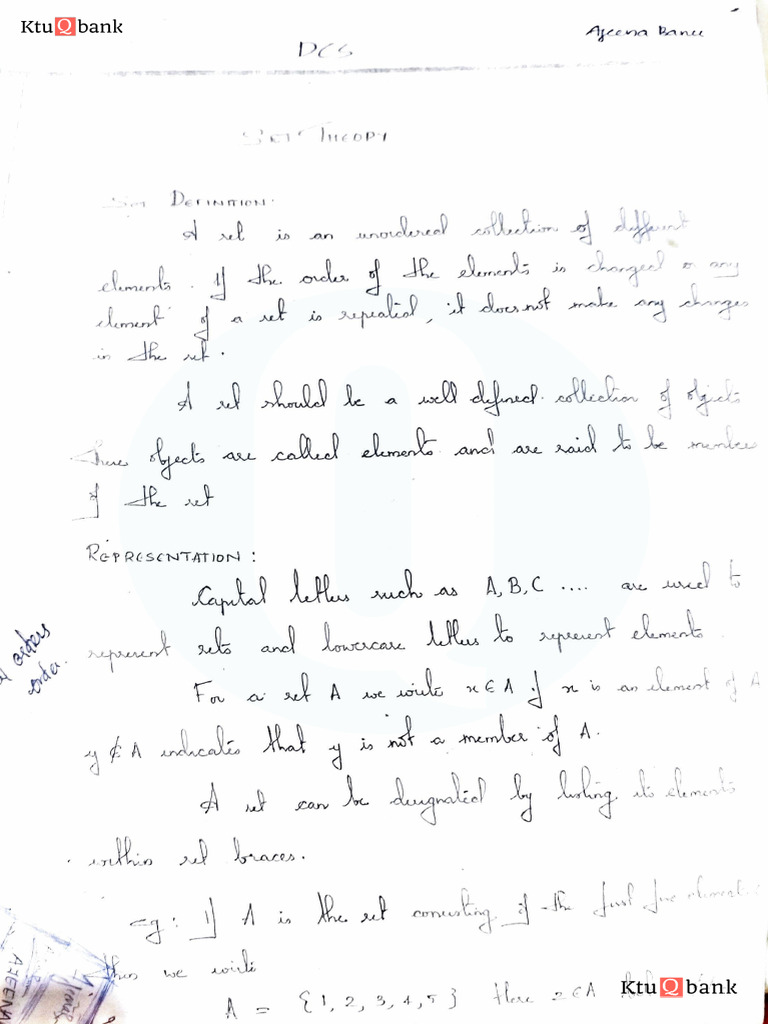 KtuQbank
Ajeena Banu
DCS
SET THEORY
DEFINITION:
A set is an unordered collection of different
elements. If the order of the elements is changed or any
element of a set is repeated, it does not make any changes
in the set.
A set should be a well defined collection of objects
These objects are called elements and are said to be member
of the set
REPRESENTATION:
Capital letters such as A, B, C .... are used to
represent sets and lowercase letters to represent elements.
orders
order.
For a set A we write x ∈ A if x is an element of A
y ∉ A indicates that y is not a member of A.
A set can be designated by listing its elements
within set braces.
eg: If A is the set consisting of the first five elements
then we write
A = {1, 2, 3, 4, 5} Here 2 ∈ A
AJEENA
KtuQbank